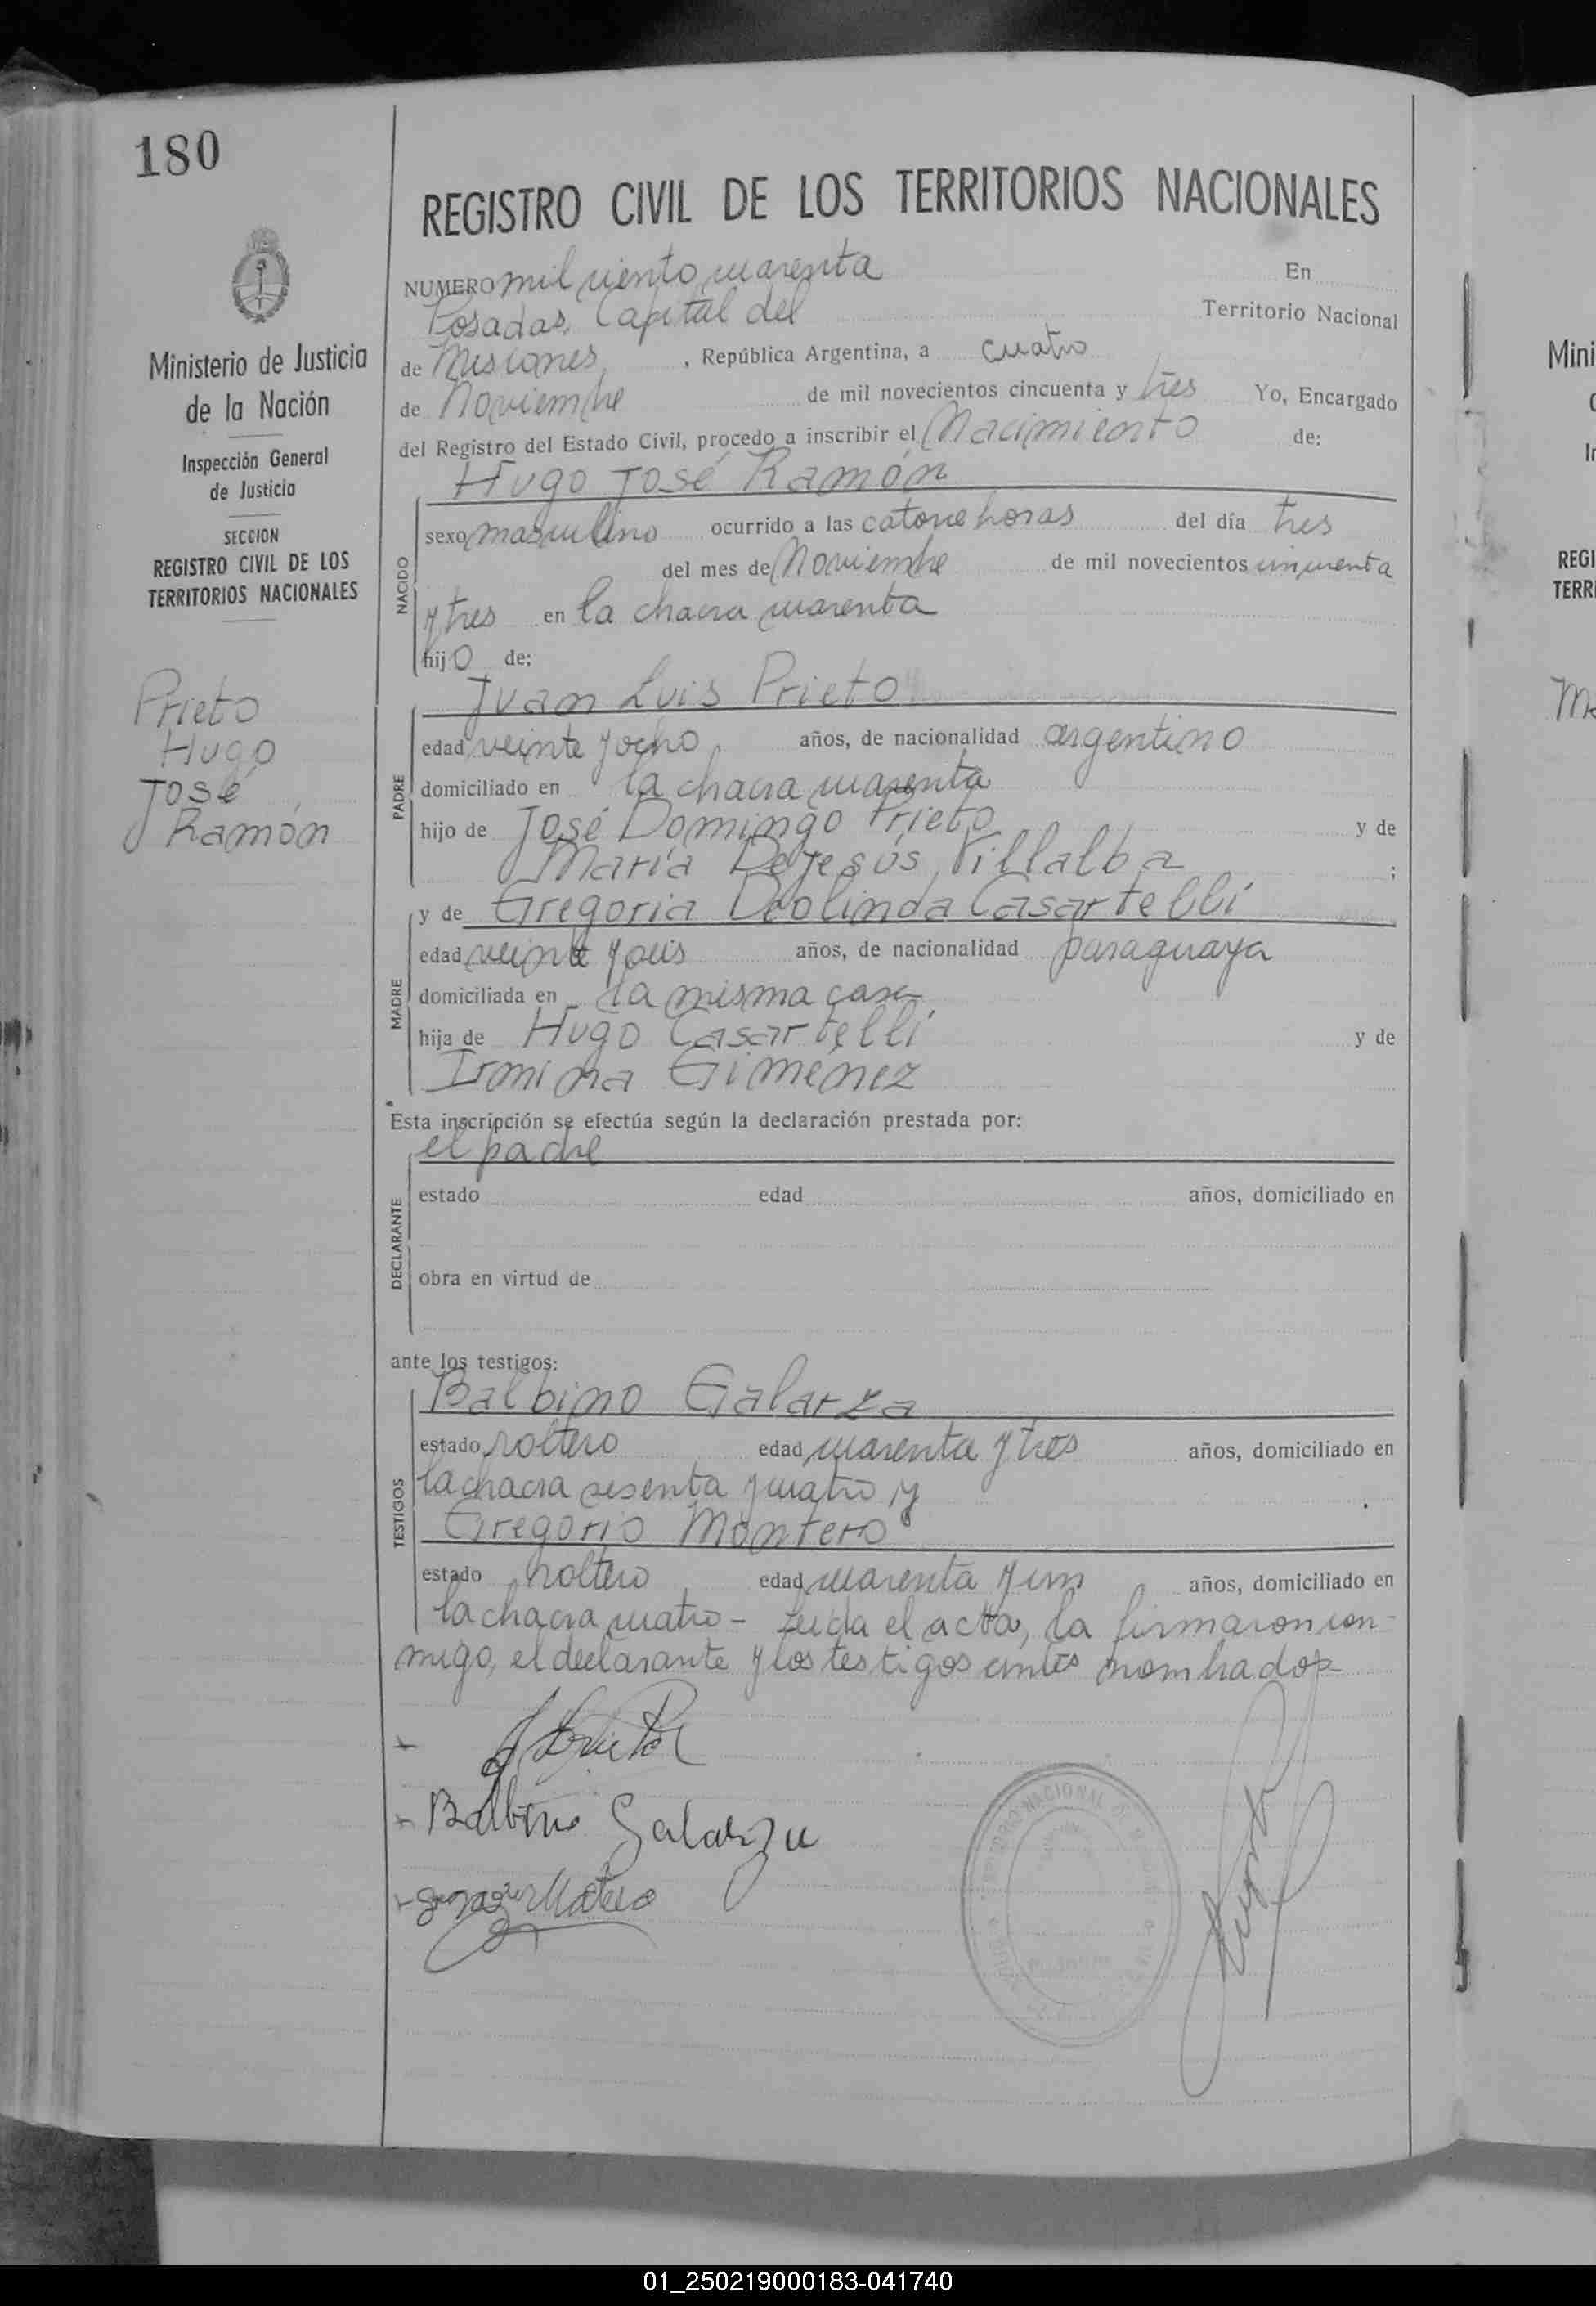 180
Ministerio de Justicia
de la Nación
Inspección General
de Justicia
SECCION
REGISTRO CIVIL DE LOS
TERRITORIOS NACIONALES
Prieto
Hugo
José
Ramón
REGISTRO CIVIL DE LOS TERRITORIOS NACIONALES
NUMERO mil ciento cuarenta En
Posadas, Capital del Territorio Nacional
de Misiones, República Argentina, a cuatro
de Noviembre de mil novecientos cincuenta y tres Yo, Encargado
del Registro del Estado Civil, procedo a inscribir el Nacimiento de:
Hugo José Ramón
NACIDO
sexo masculino ocurrido a las catorce horas del día tres
del mes de Noviembre de mil novecientos cincuenta
y tres en la chacra cuarenta
hijo de:
Juan Luis Prieto
PADRE
edad veinte y ocho, años, de nacionalidad argentino
domiciliado en la chacra cuarenta
hijo de José Domingo Prieto y de
María Dejesús Villalba ;
MADRE
y de Gregoria Deolinda Casartelli
edad veinte y seis años, de nacionalidad paraguaya
domiciliada en la misma casa
hija de Hugo Casartelli y de
Irmina Giménez
Esta inscripción se efectúa según la declaración prestada por:
el padre
DECLARANTE
estado edad años, domiciliado en
obra en virtud de
ante los testigos:
TESTIGOS
Balbino Galarza
estado soltero edad cuarenta y tres años, domiciliado en
la chacra sesenta y cuatro y
Gregorio Montero
estado soltero edad cuarenta y un años, domiciliado en
la chacra cuatro - Leida el acta, la firmaron con-
migo, el declarante y los testigos antes nombrados-
Balbino Galarza
NACIONAL
Mini
REGI
TERRI
01_250219000183-041740